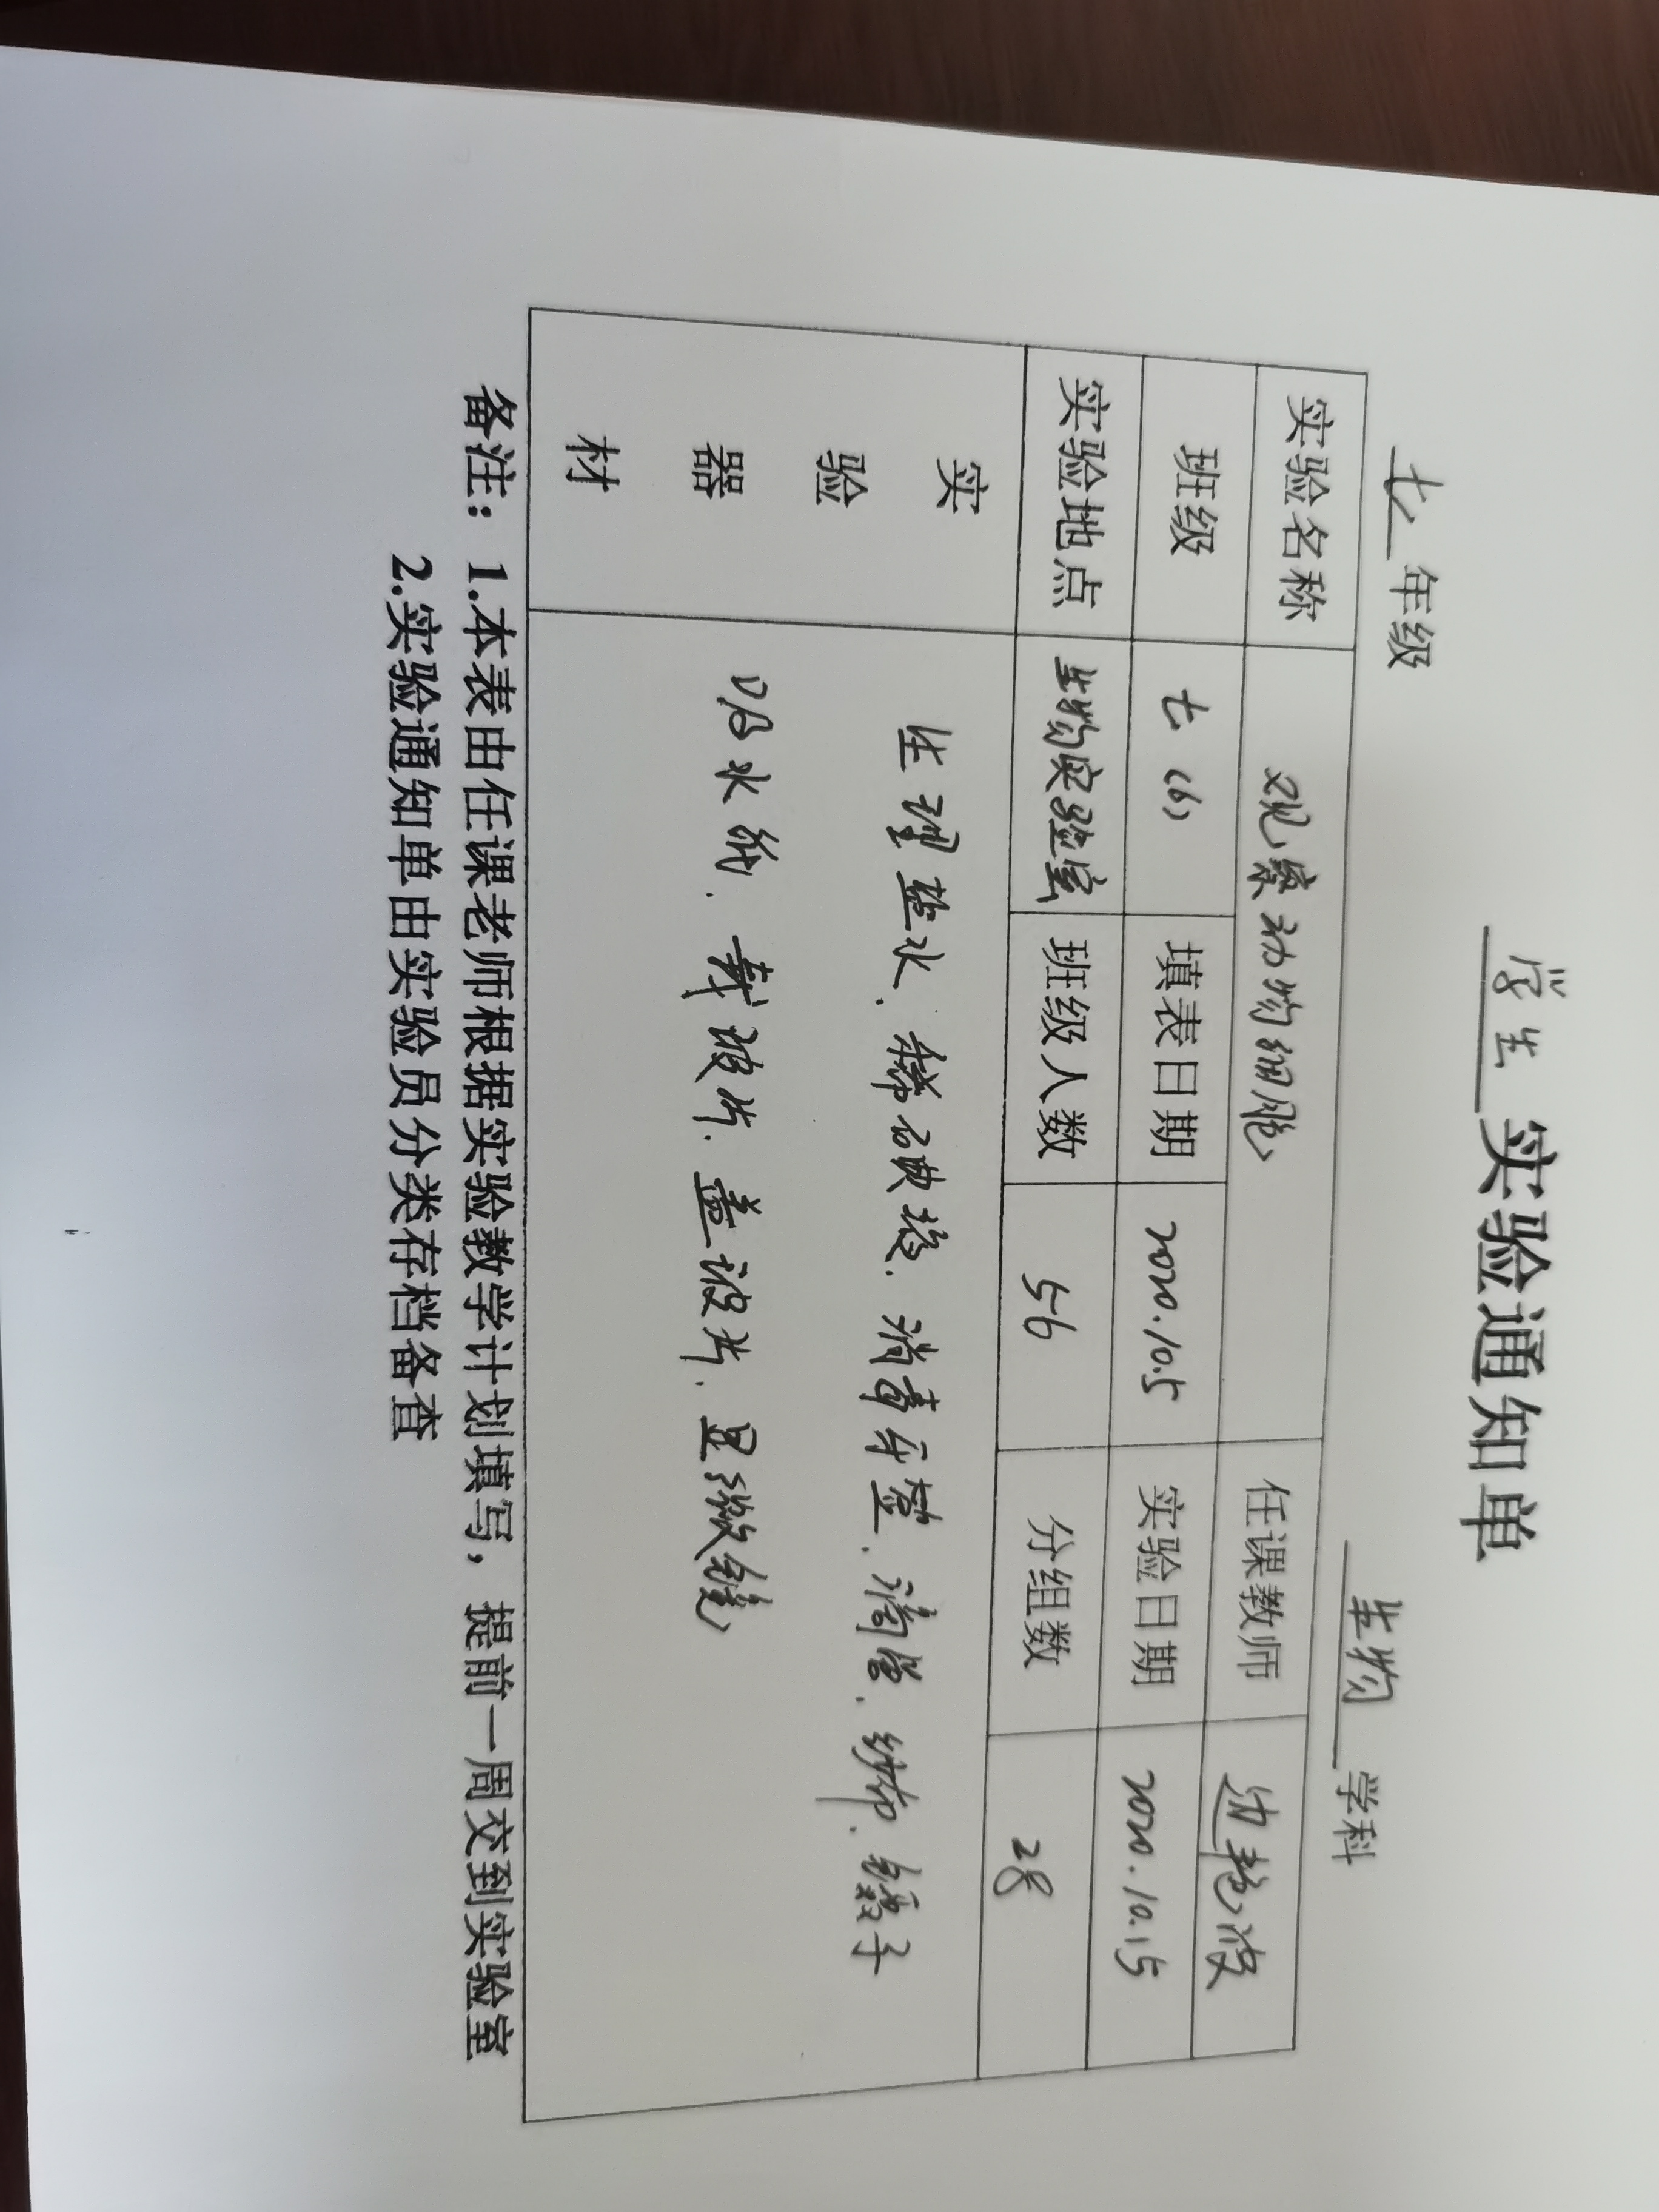 学生实验通知单
七年级 生物学科
实验名称 观察动物细胞 任课教师 边艳波
班级 七(6) 填表日期 2020.10.5 实验日期 2020.10.15
实验地点 生物实验室 班级人数 56 分组数 28
实验器材
生理盐水、稀碘液、消毒牙签、滴管、纱布、镊子
吸水纸、载玻片、盖玻片、显微镜
备注：1.本表由任课老师根据实验教学计划填写，提前一周交到实验室
2.实验通知单由实验员分类存档备查